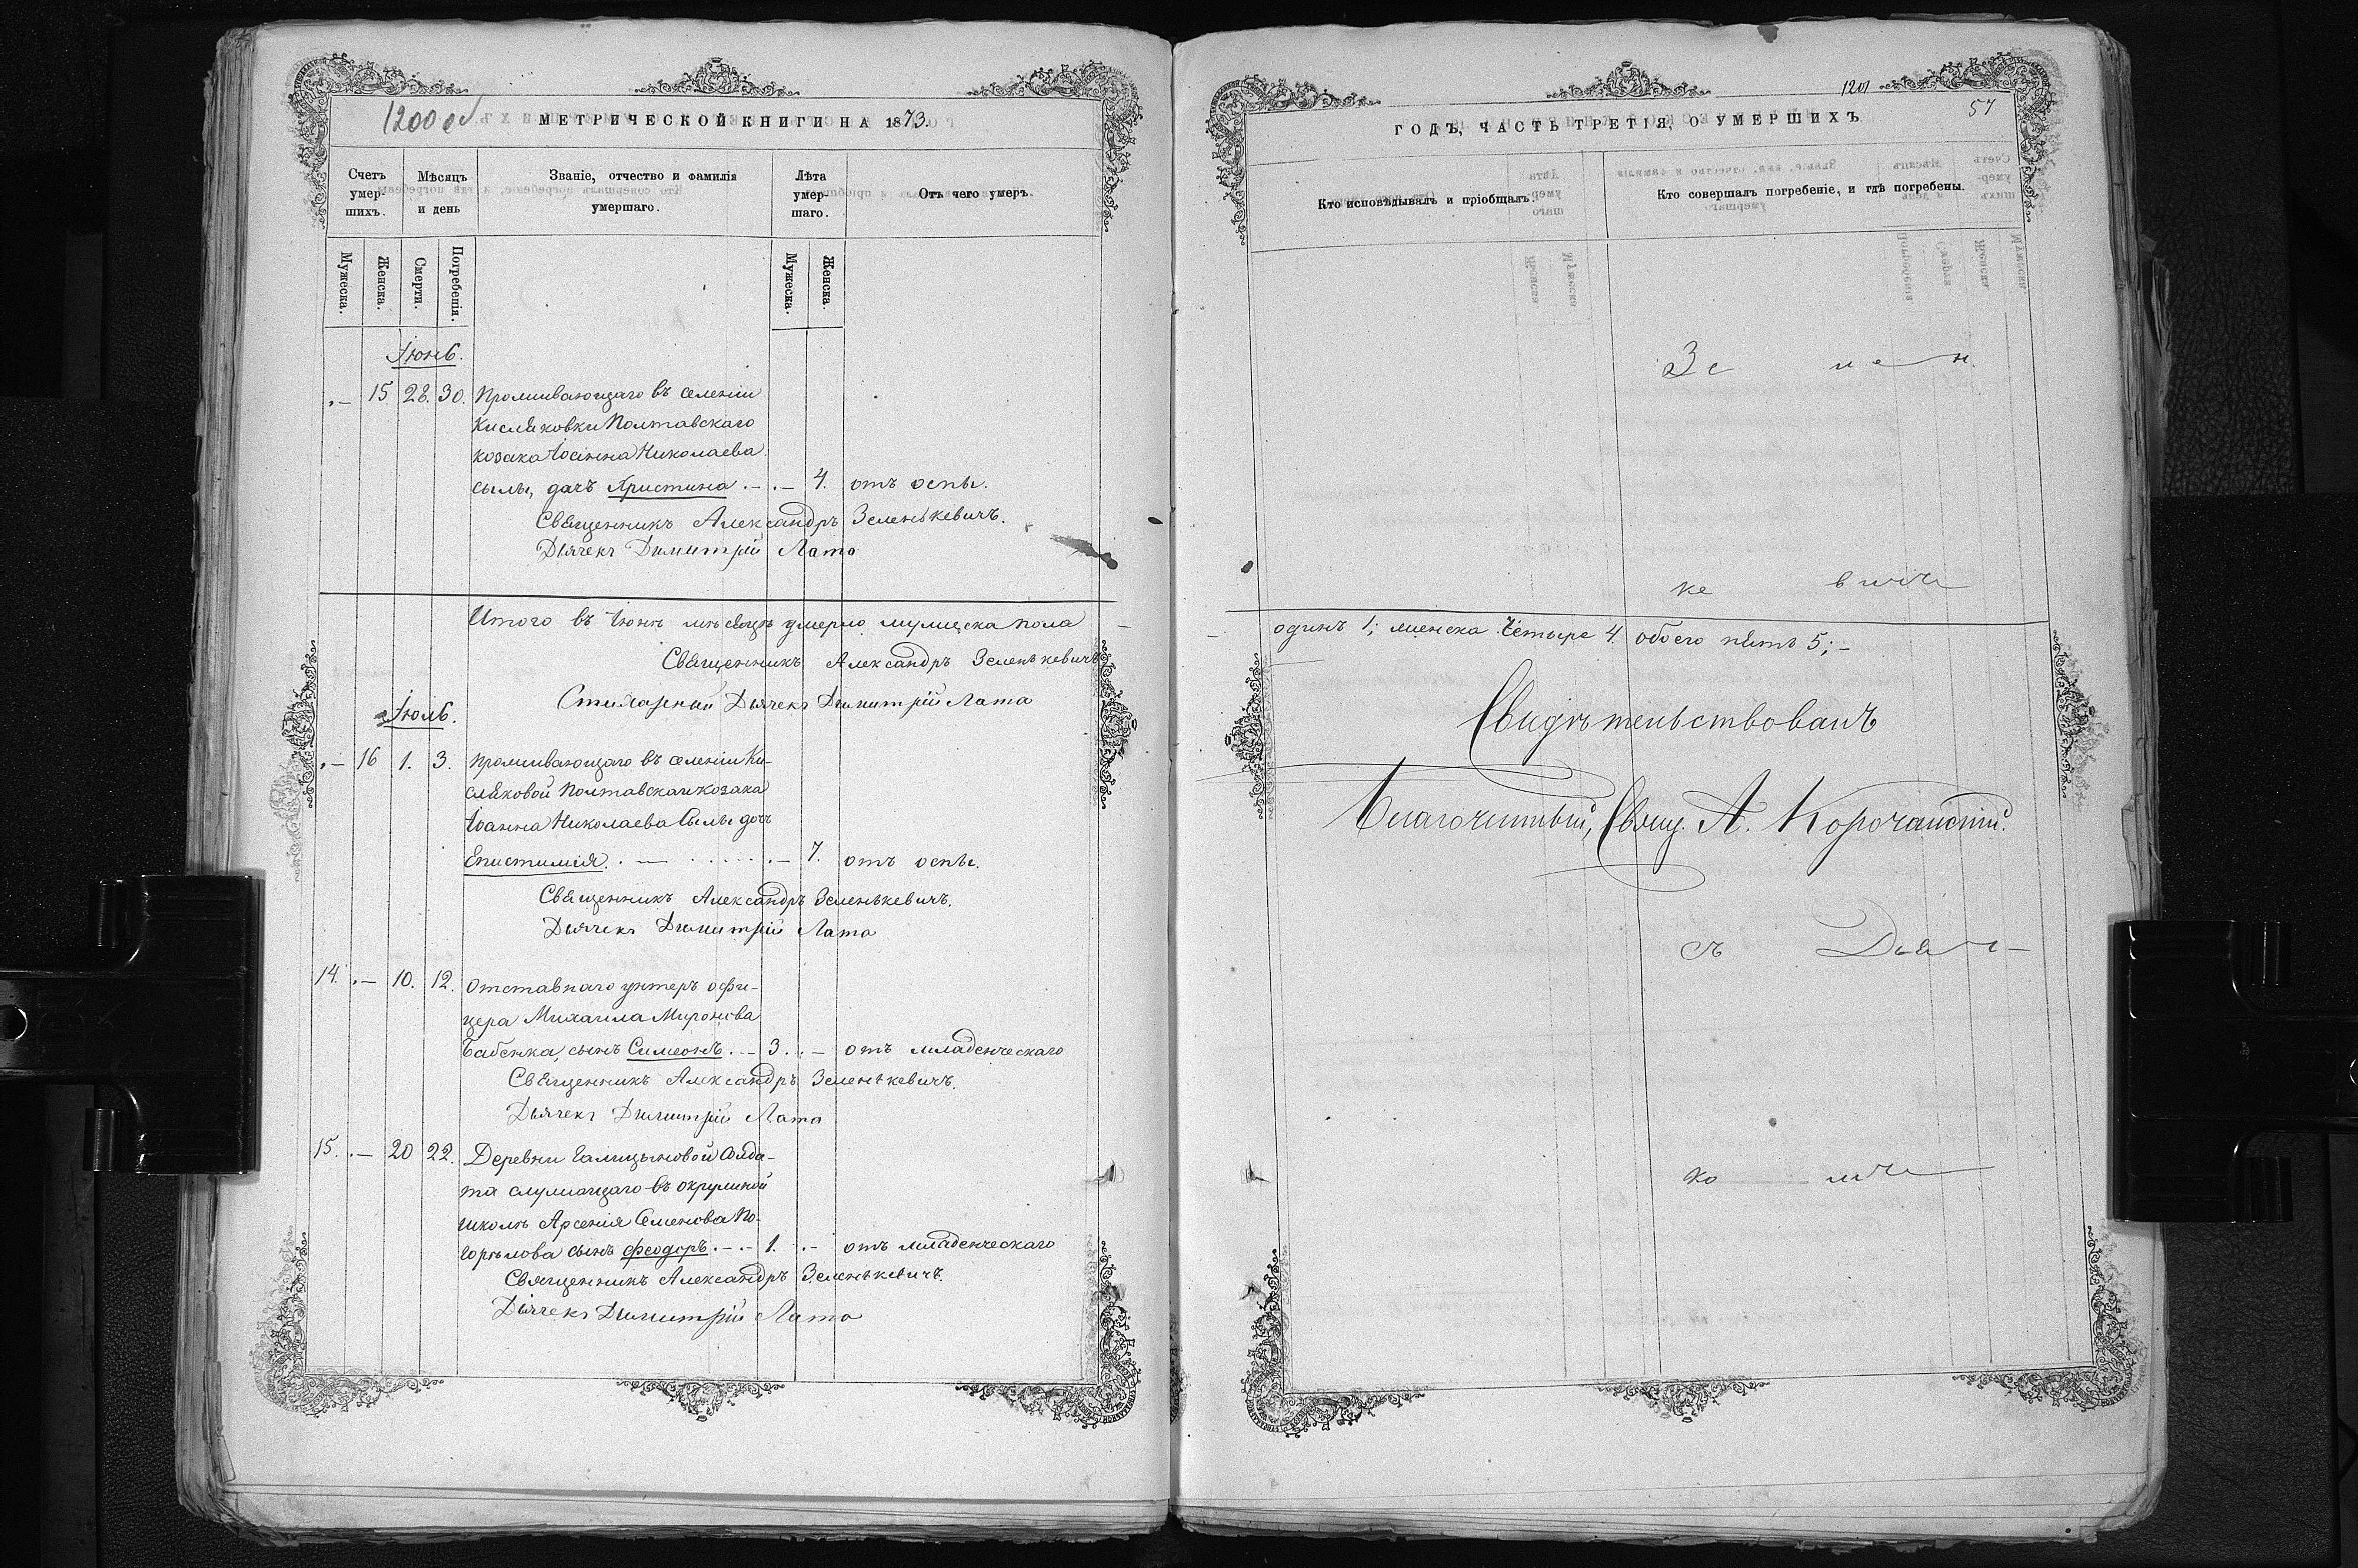 1200 об
МЕТРИЧЕСКОЙ КНИГИ НА 1873.
Счетъ умер-шихъ.
Мѣсяцъ и день
Званіе, отчество и фамилія умершаго.
Лѣта умер-шаго.
Отъ чего умеръ.
Мужеска.
Женска.
Смерти.
Погребенія.
Мужеска.
Женска.
Іюнь.
15 28. 30. Проживающаго въ селеніи
Кисляковки Полтавскаго
козака Іоанна Николаева
Сылы, дочь Христина 4. отъ оспы.
Священникъ Александръ Зеленькевичъ.
Дьячекъ Димитрій Лата
Итого въ Іюнѣ мѣсяцѣ умерло мужеска пола
Священникъ Александръ Зеленькевичъ
Стихарный Дьячекъ Димитрій Лата
Іюль.
16 1. 3. Проживающаго въ селеніи Ки-
сляковой Полтавскаго козака
Іоанна Николаева Сылы дочь
Епистимія. 7. отъ оспы.
Священникъ Александръ Зеленькевичъ.
Дьячекъ Димитрій Лата
14. 10. 12. Отставнаго унтеръ офи-
цера Михаила Миронова
Бабенка, сынъ Симеонъ 3. отъ младенческаго
Священникъ Александръ Зеленькевичъ.
Дьячекъ Димитрій Лата
15. 20 22. Деревни Галицыновой Солда-
та служащаго въ окружной
школѣ Арсенія Семенова По-
горѣлова сынъ Феодоръ 1. отъ младенческаго
Священникъ Александръ Зеленькевичъ.
Дьячекъ Димитрій Лата
1201
57
ГОДЪ, ЧАСТЬ ТРЕТІЯ, О УМЕРШИХЪ
Кто исповѣдывалъ и пріобщалъ.
Кто совершалъ погребеніе, и гдѣ погребены.
Зе лен
ке вичъ
одинъ 1; женска четыре 4 обоего пять 5;
Свидѣтельствовалъ
Благочинный, Свящ. А. Корочанскій.
съ Дьяч-
ко мъ